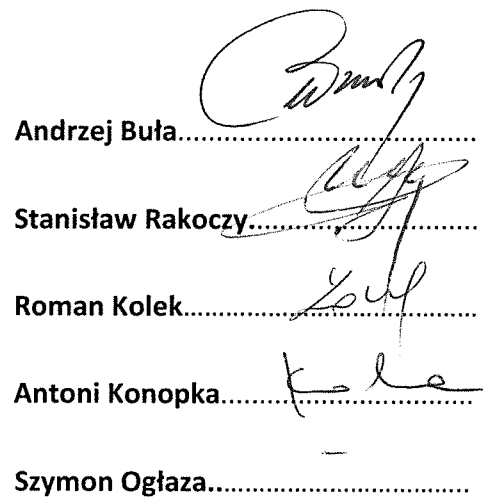 Andrzej Buła..............................
Stanisław Rakoczy..............................
Roman Kolek..............................
Antoni Konopka..............................
Szymon Ogłaza..............................